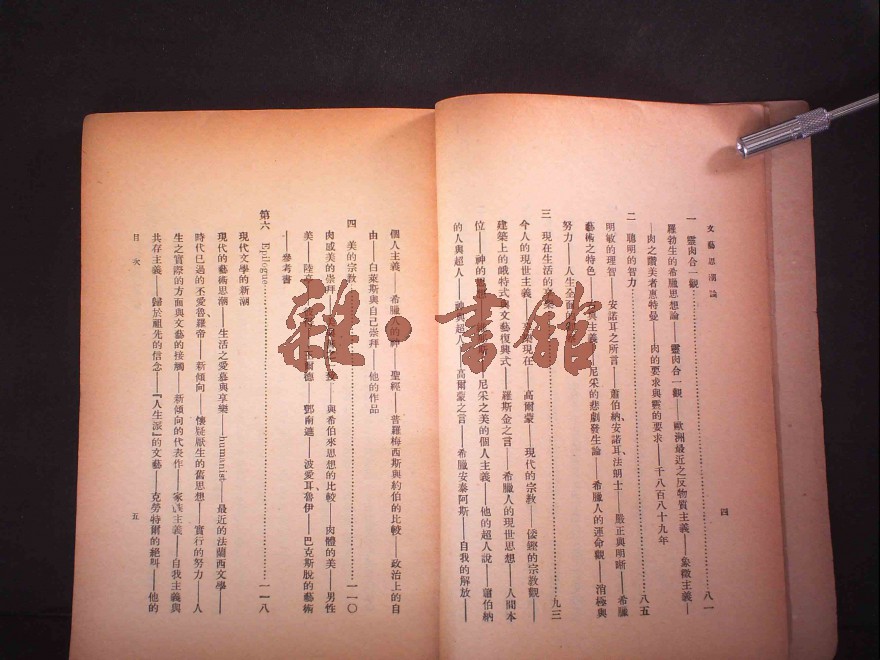 文藝思潮論
四
一 靈肉合一觀……八一
羅勃生的希臘思想論——靈肉合一觀——歐洲最近之反物質主義——象徵主義—
—肉之讚美者惠特曼——肉的要求與靈的要求——千八百八十九年
二 聰明的智力……八五
明敏的理智——安諾耳之所言——蕭伯納、安諾耳、法朗士——嚴正與明晰——希臘
藝術之特色——主義——尼采的悲劇發生論——希臘人的運命觀——消極與
努力——人生全面的
三 現在生活的……九三
今人的現世主義——現在——高爾蒙——現代的宗教——倭鏗的宗教觀—
建築上的峨特式與文藝復興式——羅斯金之言——希臘人的現世思想——人間本
位——神的——尼采之美的個人主義——他的超人說——蕭伯納
的人與超人——神與超人——高爾蒙之言——希臘安泰阿斯——自我的解放—
個人主義——希臘人的神——聖經——普羅梅西斯與約伯的比較——政治上的自
由——白萊斯與自己崇拜——他的作品
四 美的宗教……一一〇
肉感美的崇拜——與希伯來思想的比較——肉體的美——男性
美——陸——王爾德——鄧南遮——波愛耳、魯伊——巴克斯脫的藝術
——參考書
第六 Epilogue……一一八
現代文學的新潮
現代的藝術思潮——生活之愛慕與享樂——humanist——最近的法蘭西文學—
時代已過的不愛魯羅帝——新傾向——懷疑厭生的舊思想——實行的努力——人
生之實際的方面與文藝的接觸——新傾向的代表作——家族主義——自我主義與
共存主義——歸於祖先的信念——『人生派』的文藝——克勞特爾的絕叫——他的
目次
五
雜·書館